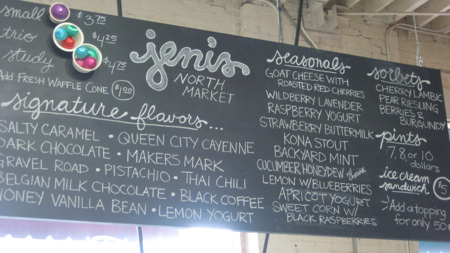 small $3.75
trio $4.25
study $4.75
Add Fresh Waffle Cone
jeni's
NORTH
MARKET
signature flavors...
SALTY CARAMEL • QUEEN CITY CAYENNE
DARK CHOCOLATE • MAKERS MARK
GRAVEL ROAD • PISTACHIO • THAI CHILI
BELGIAN MILK CHOCOLATE • BLACK COFFEE
HONEY VANILLA BEAN • LEMON YOGURT
seasonals
GOAT CHEESE WITH
ROASTED RED CHERRIES
WILDBERRY LAVENDER
RASPBERRY YOGURT
STRAWBERRY BUTTERMILK
KONA STOUT
BACKYARD MINT
CUCUMBER HONEYDEW
LEMON W/BLUEBERRIES
APRICOT YOGURT
SWEET CORN W/
BLACK RASPBERRIES
sorbets
CHERRY LAMBIC
PEAR RIESLING
BERRIES &
BURGUNDY
pints
7, 8 or 10
dollars
ice cream
sandwich
Add a topping
for only 50